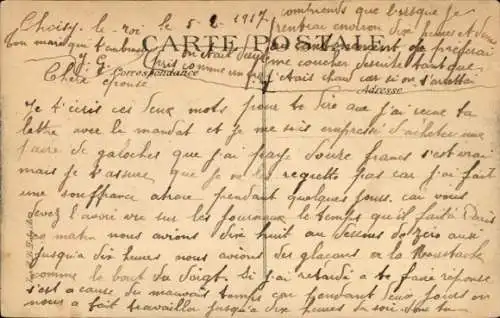 Choisy-le-roi le 5-2-1917
comprends que lorsque je
rentrai environ dix heures et demi
Ton mari qui t'embrasse
CARTE POSTALE
on était
J. G.
me coucher de suite tant que
pris comme un
j'étais chaud car si on s'arrêtai
Chère épouse
Correspondance
Adresse
Je t'écris ces deux mots pour te dire que j'ai reçue ta
lettre avec le mandat et je me suis empressé d'acheter une
paire de galoches que j'ai payé douze francs s'est vrai
mais je t'assure que je ne les regrette pas car j'ai fait
une souffrance atroce pendant quelques jours car vous
devez l'avoir vue sur les journaux le temps qu'il fait à Paris
ce matin nous avions dix huit au dessous de zéro aussi
jusqu'à dix heures nous avions des glaçons a la moustache
comme le bout du doigt. Si j'ai retardé a te faire réponse
s'est a cause du mauvais temps car pendant deux jours on
nous a fait travailler jusqu'à dix heures du soir donc tu